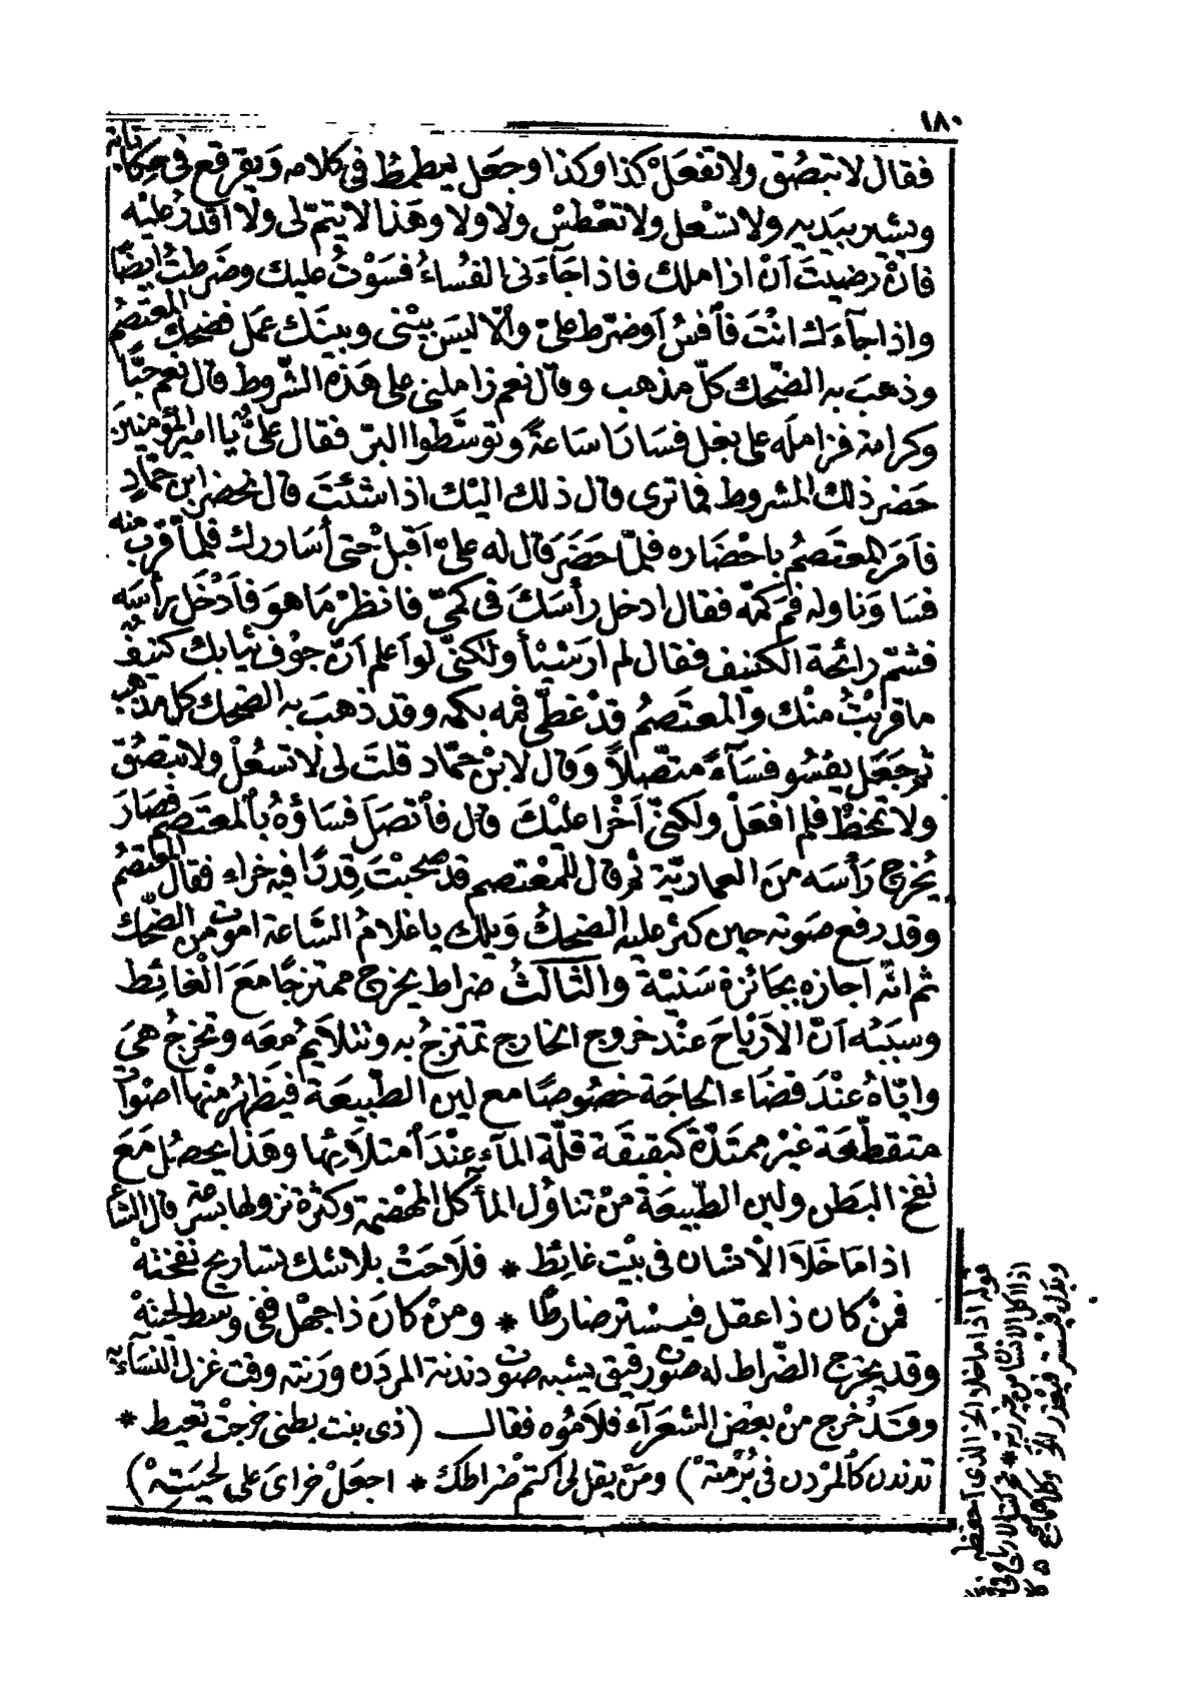 ١٨٠
فقال لا تبصُق ولا تفعَلْ كذا وكذا وجعَل يطمطُ فى كلامه ويقرقع فى حكاياته
ويشير بيَديه ولا تسْعل ولا تعْطسْ ولا ولا وهَذا لا يتمّ لى ولا اقدرُ عليْه
فانْ رضيتَ اَنْ ازاملك فاذا جَآءَنى الفُساءُ فسَوْتُ عليك وضَرطتُ ايضًا
واذا جآءَك انْتَ فأفسُ اَو ضرّط علىّ والّا ليسَ بيْنى وبينَك عمَل فضحِك المعْتصمُ
وذهبَ به الضّحِك كلّ مذهب وقال نعم زاملنى على هَذه الشّروط قال نعم حبًّا
وكرامة فزاملَه على بغل فسَارَا سَاعةً وتوسَّطوا البرّ فقال علىُّ يا امير المؤمنينَ
حَضر ذلك المشروط فما ترى قال ذلك اليْك اذا شئتَ قال يحضر ابن حمّادٍ
فاَمَر المعتَصمُ باحْضاره فلمّا حَضَرَ قال له علىّ اَقبلْ حتى أُسَاررك فلمّا قربَ منه
فسَا وَناوله فمَ كمّه فقال ادخل رأسَكَ فى كمىّ فانظرْ مَا هوَ فاَدْخَل رأسَه
فشمّ رائحة الكنيف فقال لم ارَ شيْأً ولكنّى لو اَعلم اَنّ جوْف ثيابك كنيفٌ
ما قربْتُ منْك والمعتصمُ قدْ غطّى فمه بكمه وقد ذهبَ به الضحك كل مذهب
ثم جَعَل يفسُو فسَآءً متّصلاً وَقال لابنْ حمّاد قلتَ لى لا تسعُلْ ولا تبصُقْ
ولا تمخطْ فلم افعَلْ ولكنىّ اَخْرا عليْكَ قال فأتصَلَ فسَاؤهُ بألمعتَصم فصَارَ
يُخرج رَأسَه منَ العمارِيّة ثم قال للمعْتصم قد صحبْتَ قِدرًا فيه خراء فقال المعتصمُ
وقد رفع صَوته حين كثُر عليه الضحِكُ وَيلك يا غلامُ السَّاعة اموت من الضّحك
ثم انّه اجازه بجَائزة سَنيّة والثالثُ ضراط يخرج ممتزجًا مَعَ الْغائِط
وسبَبُه اَنّ الاَرْياحَ عنْد خروج الخارج تمتزجُ به وتتلاَيمُ معَه وتخرجُ هىَ
وايّاهُ عنْدَ قضَاء الحاجَة خصُوصًا مع لين الطّبيعَة فيَظهرُ منْها اصْواتٌ
متقطّعَة غيْر ممتَدّة كبقبَقَة قلّة المآءِ عنْدَ اَمتلاَئها وهَذا يحصُل مَعَ
نفخ البَطن ولين الطّبيعَة منْ تناوُل المأكل الهضمة وكثْرة نزولها بسُرْعَة قال الشاعر
اذا مَا خَلاَ الْاِنسان فى بيْت غائِط * فلاَحَتْ بلا شك تساريح نفخَتهْ
فمَنْ كان ذا عقل فيسْتر ضارطًا * ومنْ كانَ ذا جهْل ففى وسط لحيَتهْ
وقد يخرج الضّراط له صوْت رقيق يشبه صوْت دندنة المردَن ورَنته وقت غزل النسَآء به
وقَدْ خرج منْ بعْض الشعَرآء فلاَمُوه فقالــ (ذى بنت بطنى خرجتْ تعيط *
تدندن كألمرْدن فى بُرْمتهْ) ومنْ يقل لى اكتم ضراطك * اجعَلْ خراىَ على لحيَتِهْ)
قوله اذا ما خلا الخ الذى احفظه
اذا اكل الانسان من خير ربه *